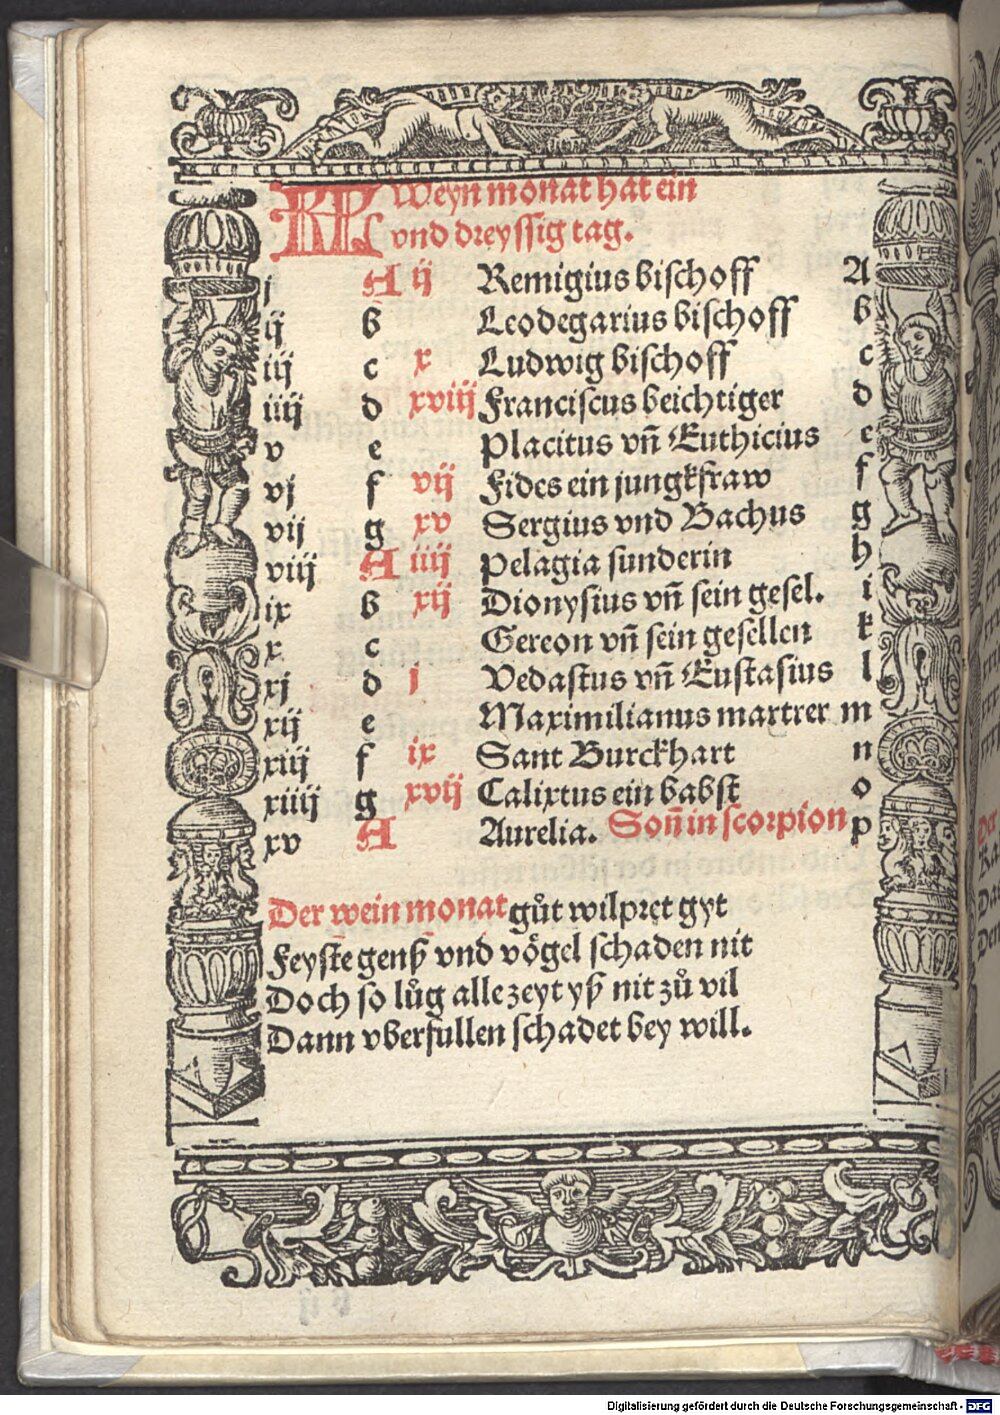 KL Weyn monat hat ein
vnd dreyssig tag.
j A ij Remigius bischoff A
ij b Leodegarius bischoff b
iij c x Ludwig bischoff c
iiij d xviij Franciscus beichtiger d
v e Placitus vn̄ Euthicius e
vj f vij Fides ein jungkfraw f
vij g xv Sergius vnd Bachus g
viij A iiij Pelagia sunderin h
ix b xij Dionysius vn̄ sein gesel. i
x c Gereon vn̄ sein gesellen k
xj d j Vedastus vn̄ Eustasius l
xij e Maximilianus martrer m
xiij f ix Sant Burckhart n
xiiij g xvij Calixtus ein babst o
xv A Aurelia. Son̄ in scorpion p
Der wein monat gůt wilpret gyt
Feyste genß vnd vögel schaden nit
Doch so lůg allezeyt yß nit zů vil
Dann vberfullen schadet bey will.
Digitalisierung gefördert durch die Deutsche Forschungsgemeinschaft - DFG